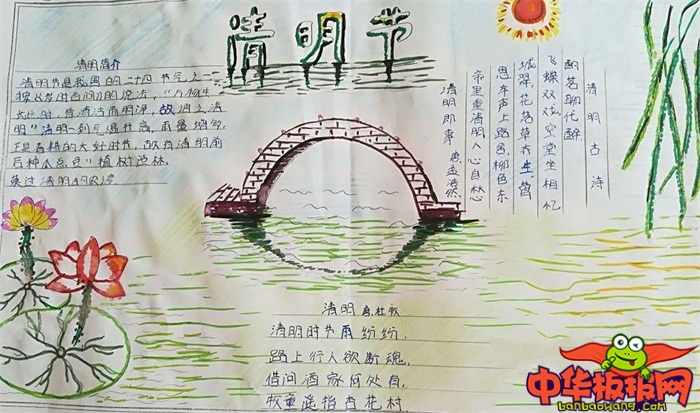 清明节
清明简介
清明节是我国的二十四节气之一
按《岁时百问》的说法,"万物生
长此时,皆清洁而明净,故谓之清
明"清明一到气温升高,雨量增多,
正是春耕的大好时节,故有清明前
后种瓜点豆"植树造林.
清明4月5号
清明古诗
酌茗聊代醉
飞蝶双双戏空堂坐相忆
城翠花落草齐生莺
思车声上路合,柳色东
帝里重清明人心自愁
清明即事 唐孟浩然
清明 唐杜牧
清明时节雨纷纷,
路上行人欲断魂,
借问酒家何处有,
牧童遥指杏花村
中华板报网
banbaowang.com